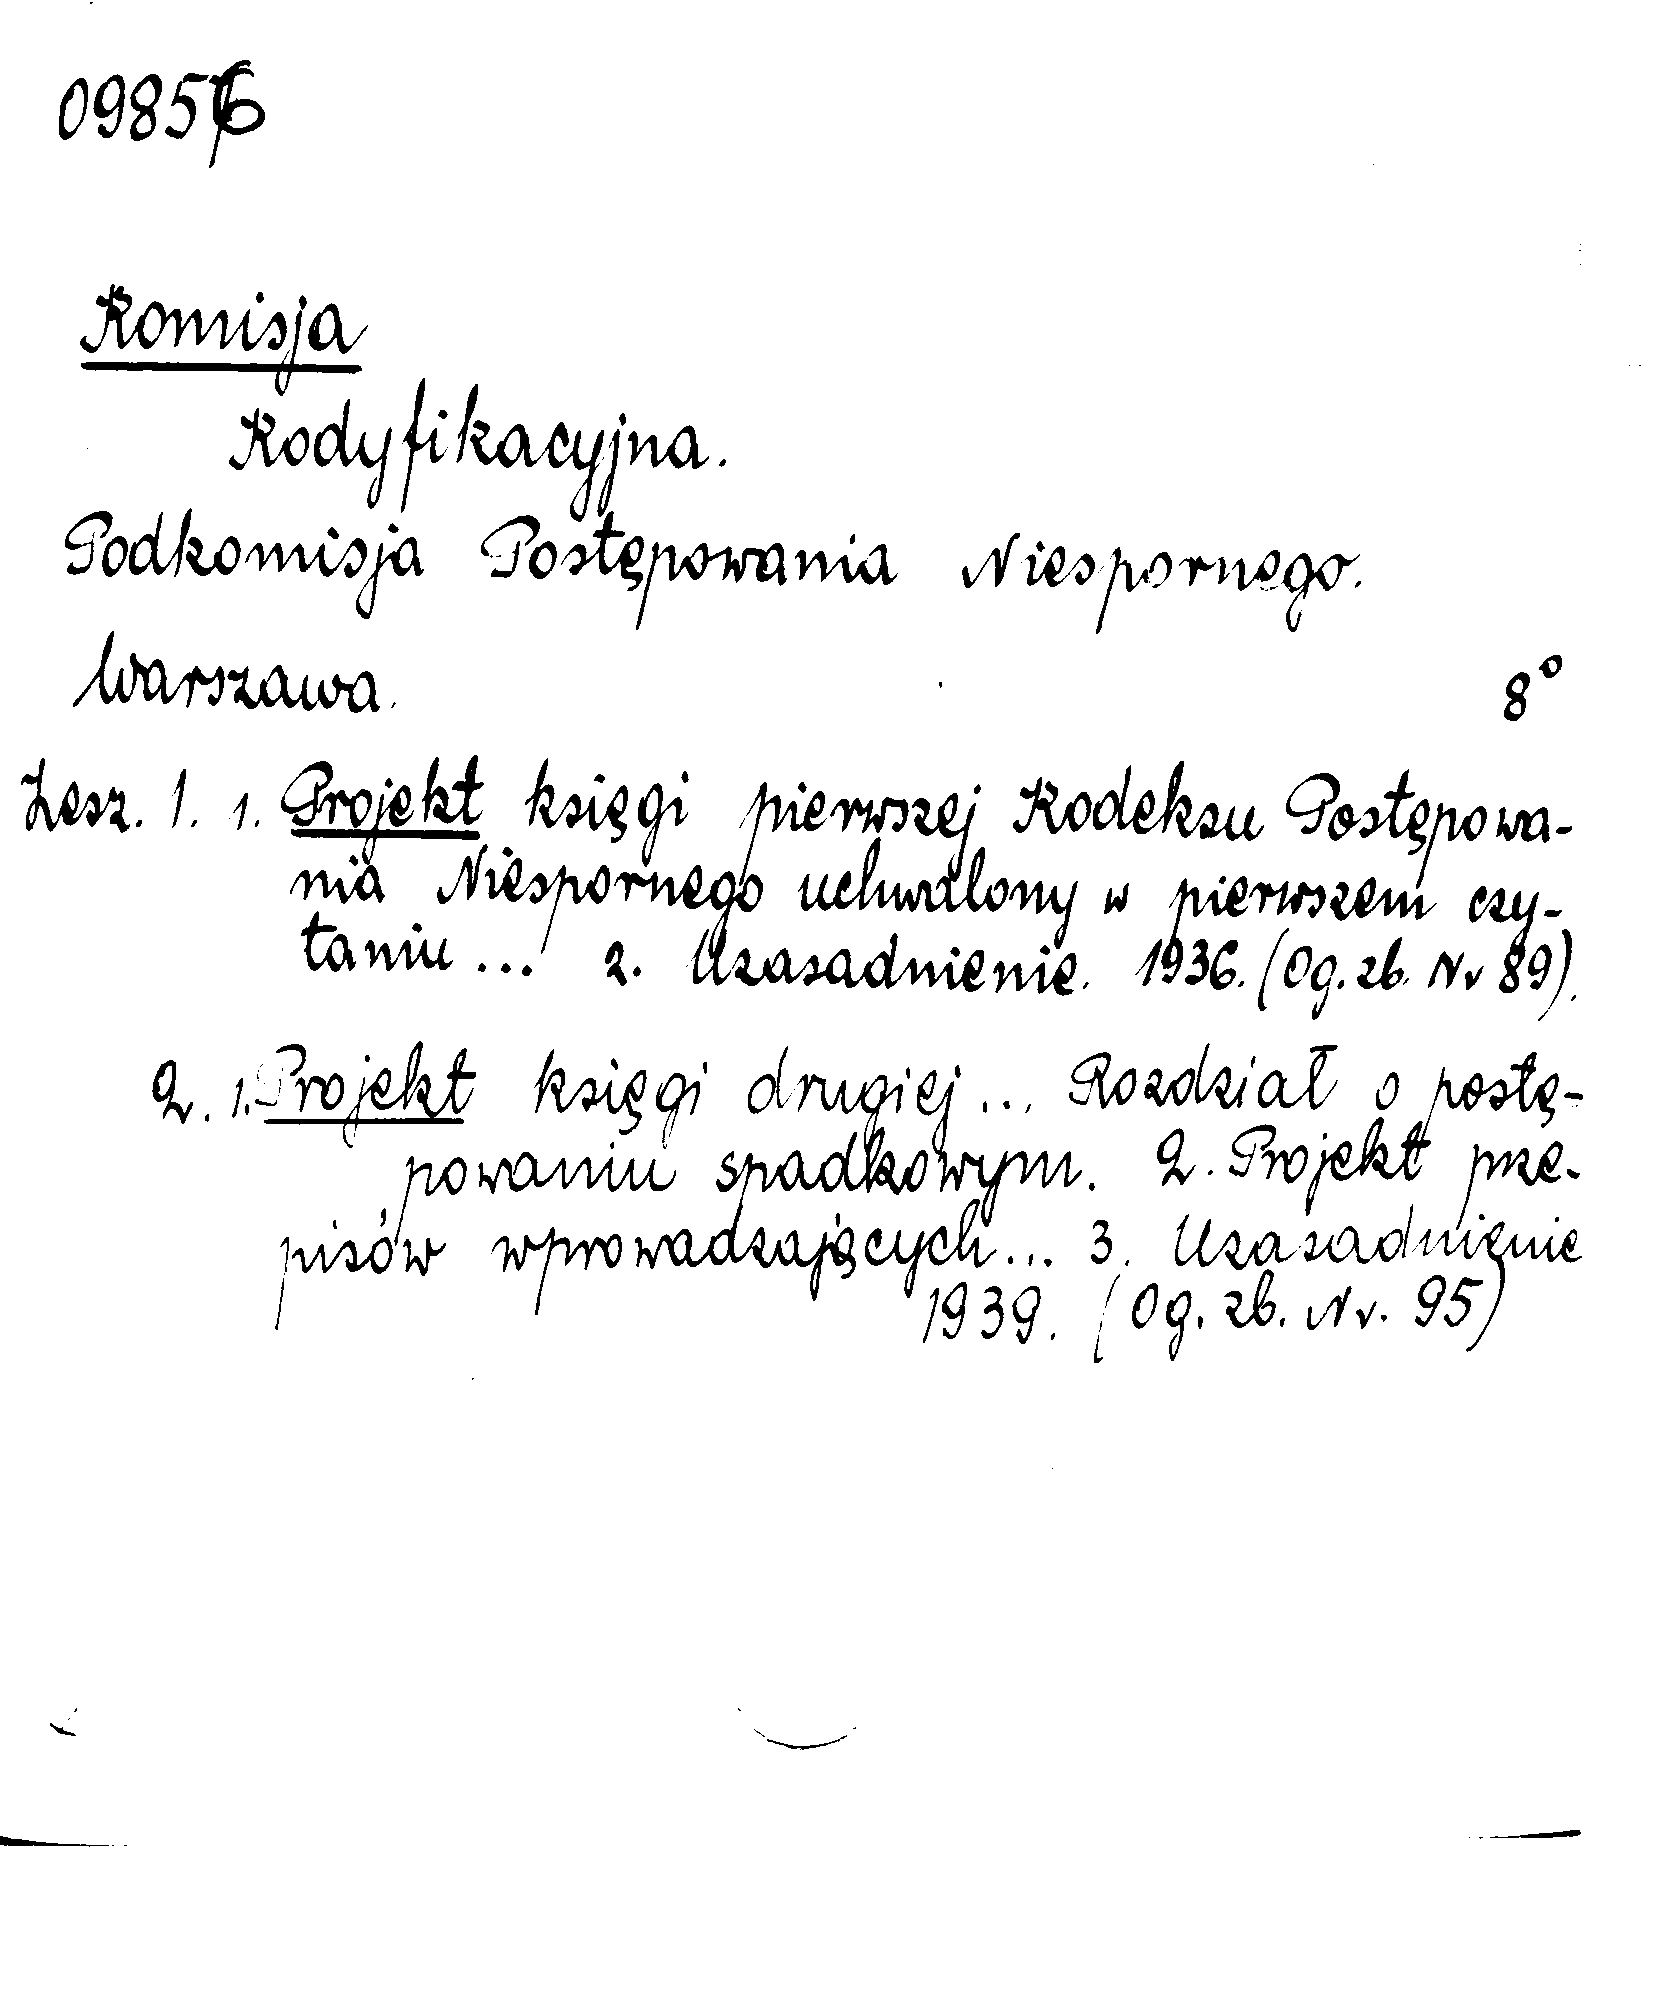 09856
Komisja
Kodyfikacyjna.
Podkomisja Postępowania Niespornego.
Warszawa. 8°
Zesz. 1. 1. Projekt księgi pierwszej Kodeksu Postępowa-
nia Niespornego uchwalony w pierwszem czy-
taniu... 2. Uzasadnienie. 1936. (Og. zb. Nr 89).
2. 1. Projekt księgi drugiej... Rozdział o postę-
powaniu spadkowym. 2. Projekt prze-
pisów wprowadzających... 3. Uzasadnienie
1939. (Og. zb. Nr. 95)